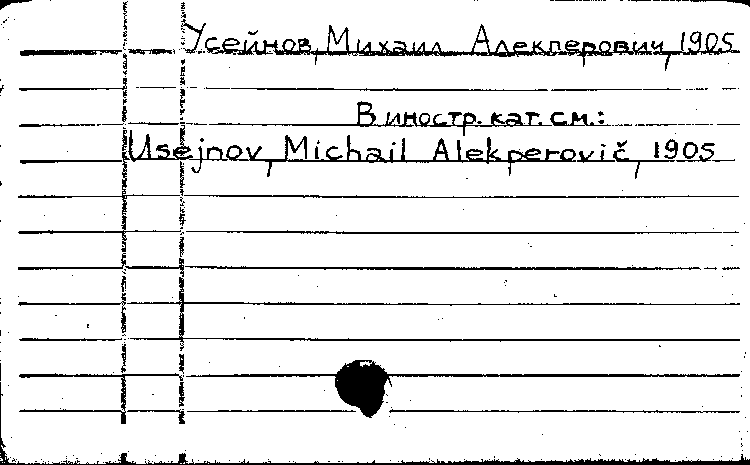 Усейнов, Михаил Алекперович, 1905
В иностр. кат. см.:
Usejnov, Michail Alekperovič, 1905